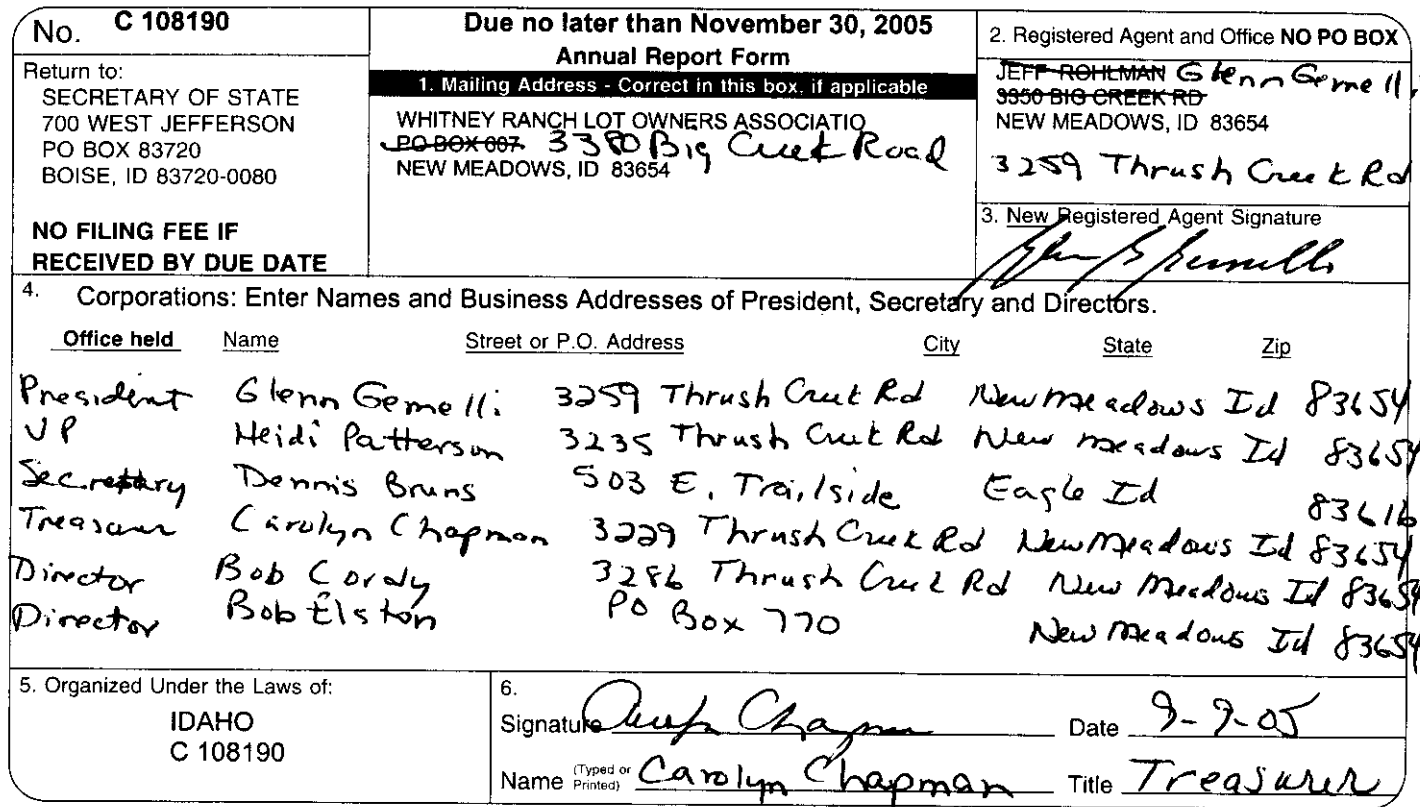 No. C 108190
Return to:
SECRETARY OF STATE
700 WEST JEFFERSON
PO BOX 83720
BOISE, ID 83720-0080
NO FILING FEE IF
RECEIVED BY DUE DATE
Due no later than November 30, 2005
Annual Report Form
1. Mailing Address - Correct in this box, if applicable
WHITNEY RANCH LOT OWNERS ASSOCIATIO
PO BOX 607 3380 Big Creek Road
NEW MEADOWS, ID 83654
2. Registered Agent and Office NO PO BOX
JEFF ROHLMAN Glenn Gemelli
3350 BIG CREEK RD
NEW MEADOWS, ID 83654
3259 Thrush Creek Rd
3. New Registered Agent Signature
4. Corporations: Enter Names and Business Addresses of President, Secretary and Directors.
Office held Name Street or P.O. Address City State Zip
President Glenn Gemelli 3259 Thrush Creek Rd New Meadows Id 83654
VP Heidi Patterson 3235 Thrush Creek Rd New Meadows Id 83654
Secretary Dennis Bruns 503 E. Trailside Eagle Id 83616
Treasurer Carolyn Chapman 3229 Thrush Creek Rd New Meadows Id 83654
Director Bob Cordy 3286 Thrush Creek Rd New Meadows Id 83654
Director Bob Elston PO Box 770 New Meadows Id 83654
5. Organized Under the Laws of:
IDAHO
C 108190
6.
Signature Chapman Date 9-9-05
Name (Typed or Printed) Carolyn Chapman Title Treasurer